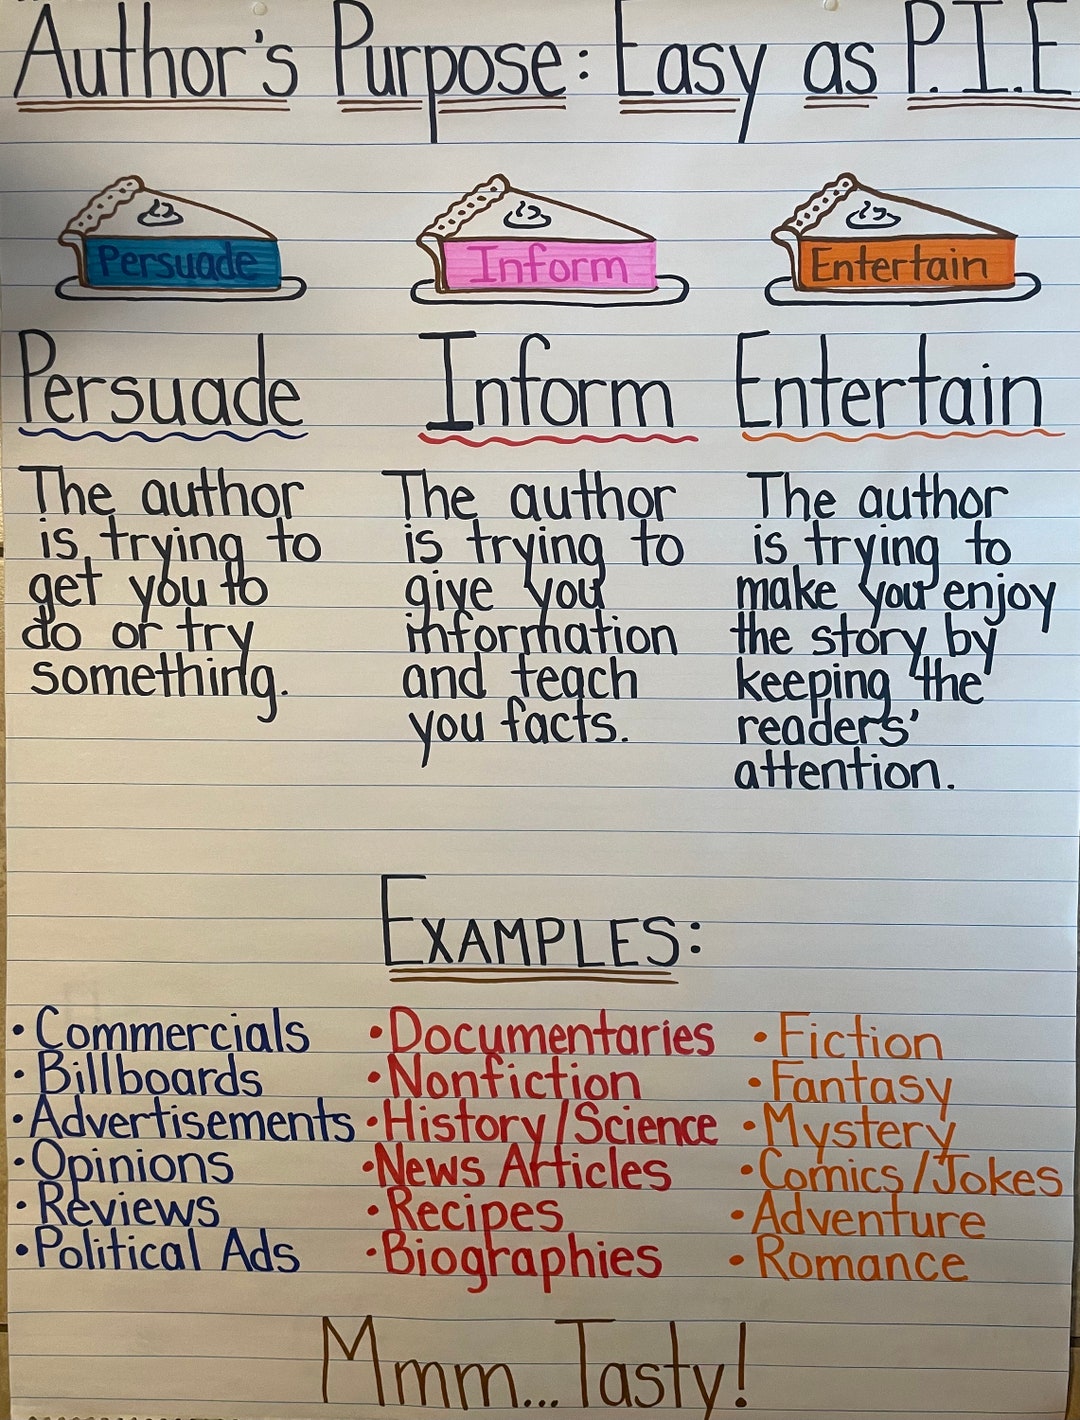 Author's Purpose: Easy as P.I.E
Persuade
Inform
Entertain
Persuade
The author
is trying to
get you to
do or try
something.
Inform
The author
is trying to
give you
information
and teach
you facts.
Entertain
The author
is trying to
make you enjoy
the story by
keeping the
readers'
attention.
EXAMPLES:
•Commercials
•Billboards
•Advertisements
•Opinions
•Reviews
•Political Ads
•Documentaries
•Nonfiction
•History/Science
•News Articles
•Recipes
•Biographies
•Fiction
•Fantasy
•Mystery
•Comics/Jokes
•Adventure
•Romance
Mmm...Tasty!